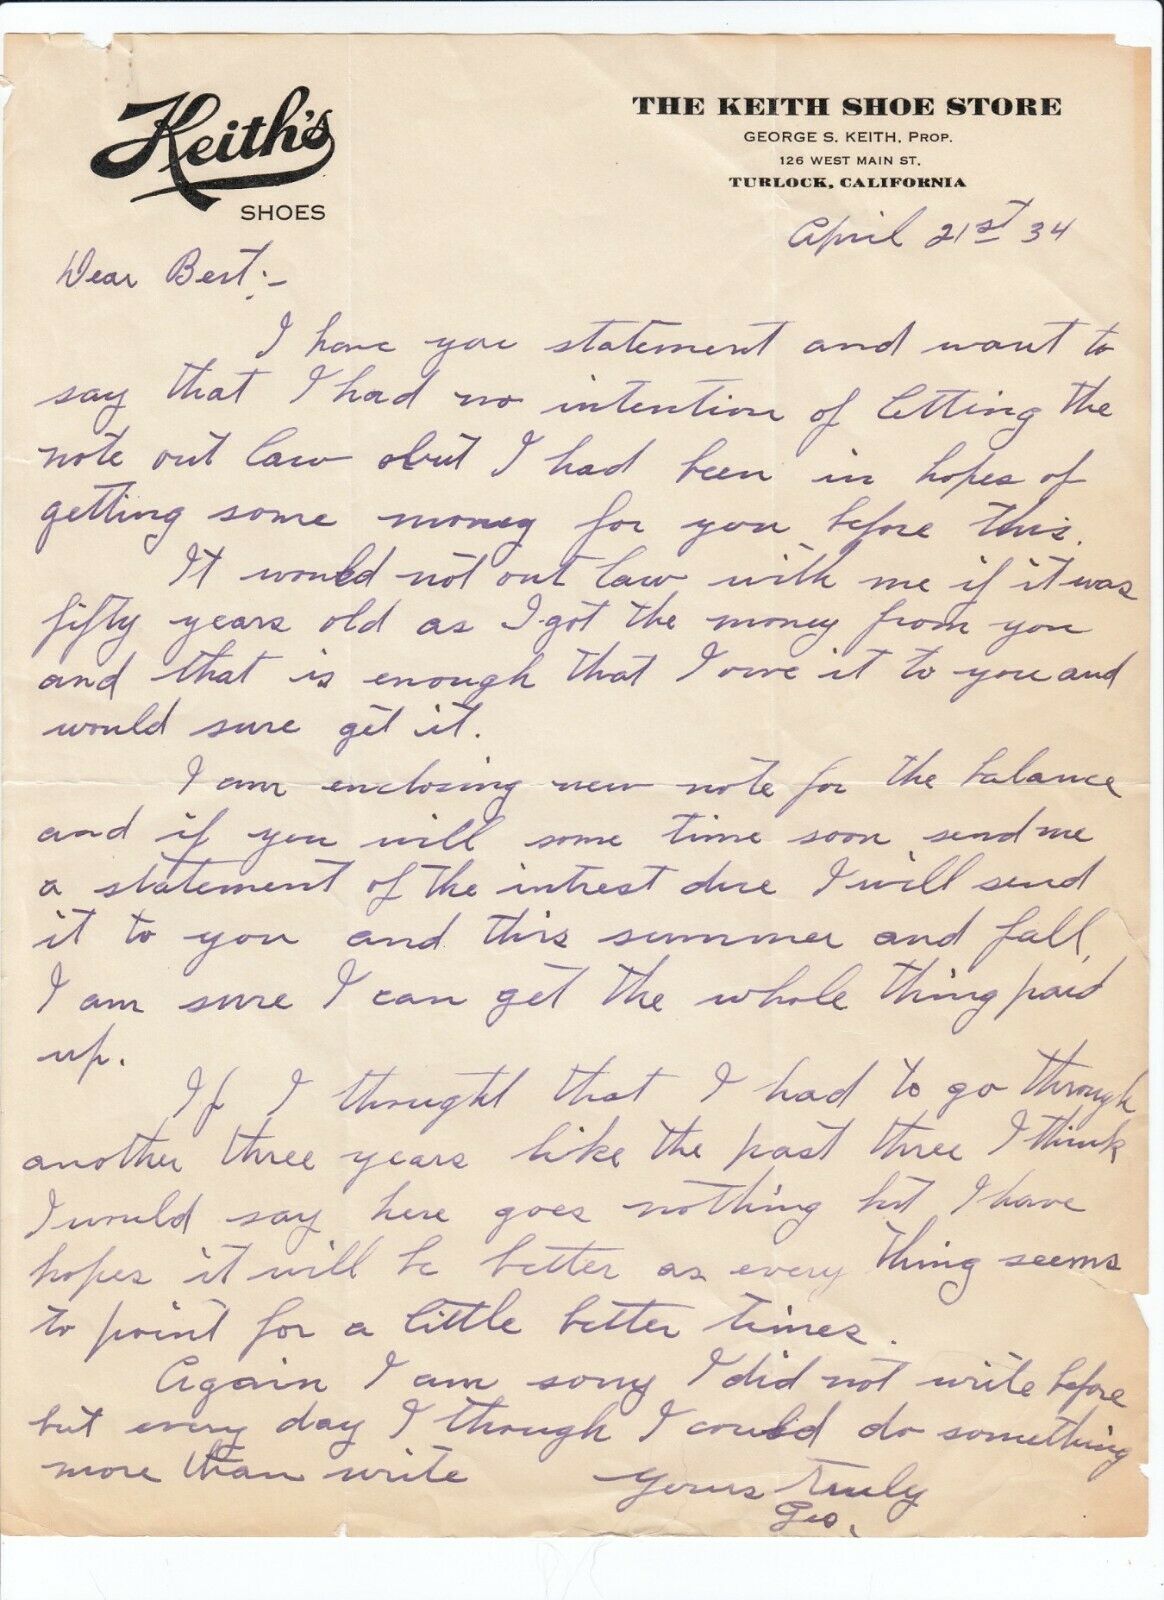 Keith's
SHOES
THE KEITH SHOE STORE
GEORGE S. KEITH, PROP.
126 WEST MAIN ST.
TURLOCK, CALIFORNIA
April 21st 34
Dear Bert:-
I have you statement and want to
say that I had no intention of letting the
note out law but I had been in hopes of
getting some money for you before this.
It would not out law with me if it was
fifty years old as I got the money from you
and that is enough that I owe it to you and
would sure get it.
I am enclosing new note for the balance
and if you will some time soon send me
a statement of the intrest due I will send
it to you and this summer and fall,
I am sure I can get the whole thing paid
up.
If I thought that I had to go through
another three years like the past three I think
I would say here goes nothing but I have
hopes it will be better as every thing seems
to point for a little better times.
Again I am sorry I did not write before
but every day I though I could do something
more than write
Yours Truly
Geo.